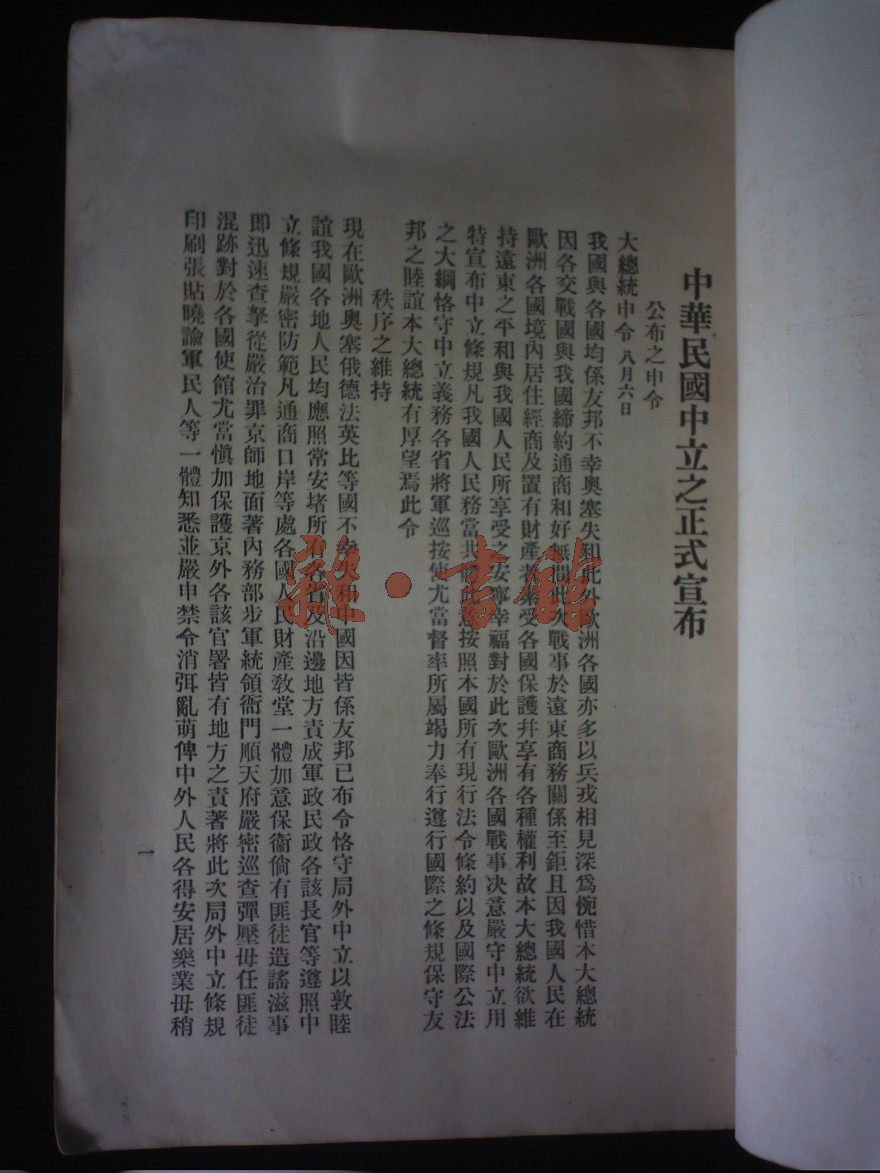 中華民國中立之正式宣布
公布之申令
大總統申令八月六日
我國與各國均係友邦不幸奧塞失和此外歐洲各國亦多以兵戎相見深爲惋惜本大總統
因各交戰國與我國締約通商和好無間此次戰事於遠東商務關係至鉅且因我國人民在
歐洲各國境內居住經商及置有財產者素受各國保護幷享有各種權利故本大總統欲維
持遠東之平和與我國人民所享受之安寧幸福對於此次歐洲各國戰事决意嚴守中立用
特宣布中立條規凡我國人民務當共體此意按照本國所有現行法令條約以及國際公法
之大綱恪守中立義務各省將軍巡按使尤當督率所屬竭力奉行遵行國際之條規保守友
邦之睦誼本大總統有厚望焉此令
秩序之維持
現在歐洲奧塞俄德法英比等國不幸失和中國因皆係友邦已布令恪守局外中立以敦睦
誼我國各地人民均應照常安堵所有各省及沿邊地方責成軍政民政各該長官等遵照中
立條規嚴密防範凡通商口岸等處各國人民財產敎堂一體加意保衞倘有匪徒造謠滋事
即迅速查拏從嚴治罪京師地面著內務部步軍統領衙門順天府嚴密巡查彈壓毋任匪徒
混跡對於各國使館尤當愼加保護京外各該官署皆有地方之責著將此次局外中立條規
印刷張貼曉諭軍民人等一體知悉並嚴申禁令消弭亂萌俾中外人民各得安居樂業毋稍
一
雜·書館